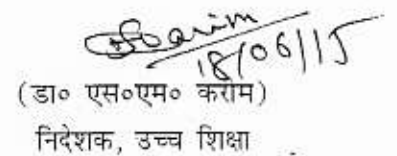 18/06/15
(डा० एस०एम० करीम)
निदेशक, उच्च शिक्षा